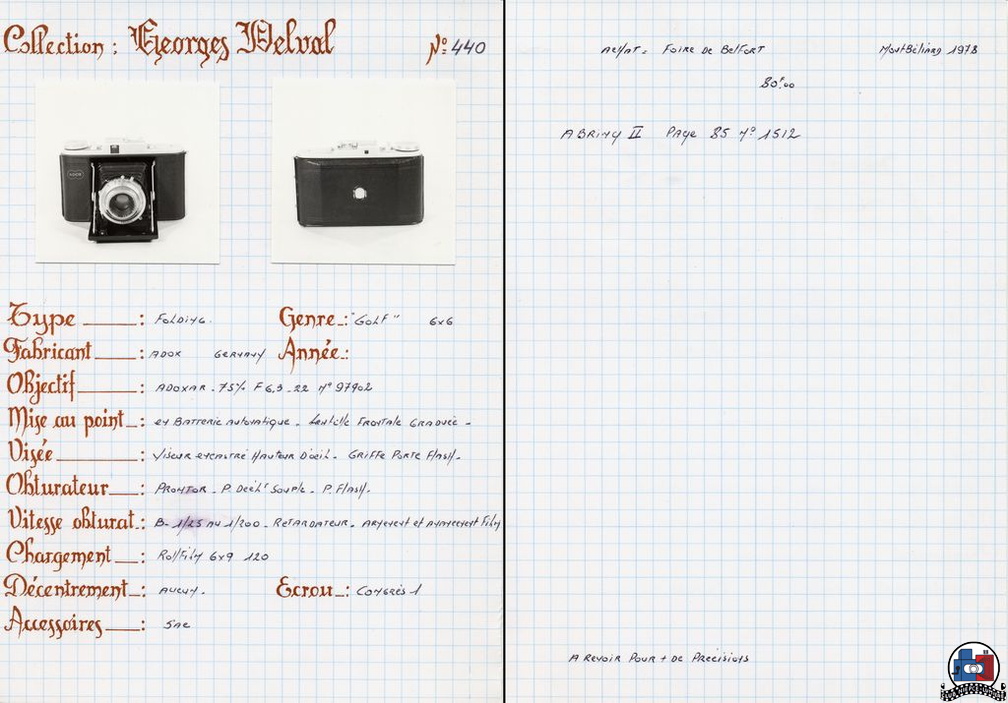 Collection : Georges Delval
N° 440
Type : Folding.
Genre : "Golf" 6x6
Fabricant : ADOX Germany
Année :
Objectif : ADOXAR - 75% F 6,3 - 22 N° 97902
Mise au point : en Batterie automatique - Lentille Frontale Graduée -
Visée : Viseur encastré Hauteur D'oeil - Griffe Porte Flash -
Obturateur : Prontor - P. Decl' Souple - P. Flash.
Vitesse obturat. : B - 1/25 au 1/200 - Retardateur - Armement et avancement Film
Chargement : Rollfilm 6x9 120
Décentrement : Aucun.
Ecrou : Congrès 1
Accessoires : Sac
Achat = Foire de Belfort Montbéliard 1978
80F,00
ABRING II Page 85 N° 1512
A Revoir Pour + de Precisions